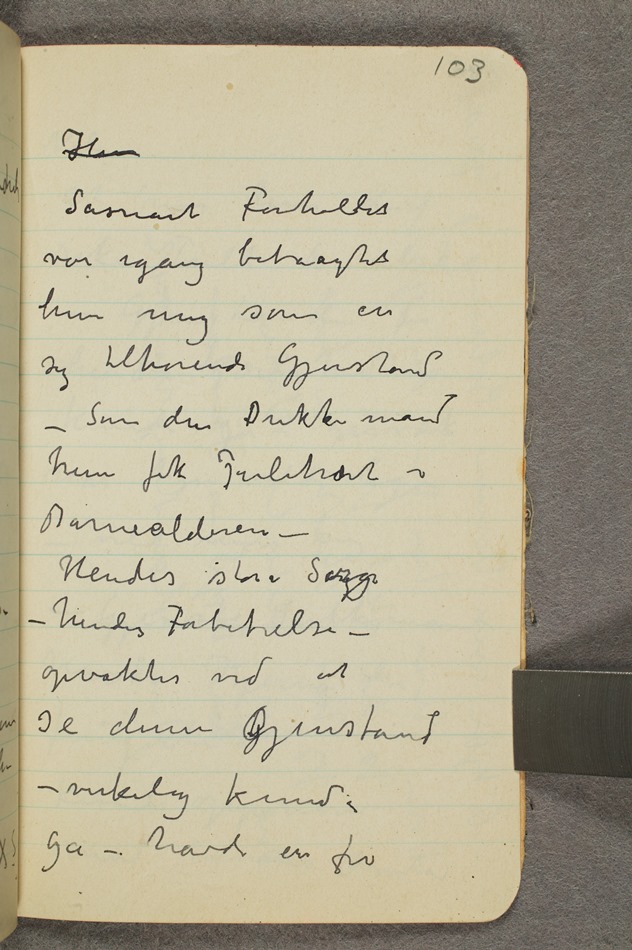 103
Hun
Sasnart Forholdet
var igang betragtet
hun mig som en
sig tilhørende Gjenstand
– Som den Dukke man
hun fik Juletræet i
Barnealderen –
Hendes store Sorg
– hendes Forbitrelse –
opvaktes ved at
se denne Gjenstand
– virkelig kunde
gå – havde en fri